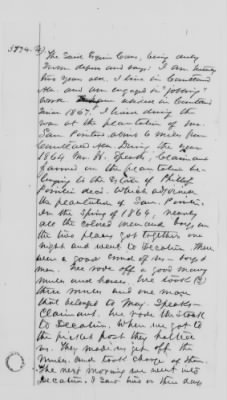 The said Squire Cross, being duly
sworn deposes and says: I am thirty
two years old. I live in Courtland
Ala. and am engaged in "jobbing"
work. I have resided in Courtland
since 1867. I lived during the
war at the plantation of Mr.
Sam Pointer about 6 miles from
Courtland Ala. During the year
1864 Mr. H. Speaks, Claimant
farmed on the plantation be-
longing to the Estate of Philip
Pointer decd. which adjoined
the plantation of Sam. Pointer.
In the Spring of 1864, nearly
all the colored men and boys, on
the two places got together one
night and went to Decatur. There
was a good crowd of us - boys &
men. We rode off a good many
mules and horses. We took (3)
three mules and one mare
that belonged to Speaks -
Claimant. We rode the stock
to Decatur. When we got to
the picket post they halted
us. They made us get off the
mules and took charge of them.
The next morning we went into
Decatur. I saw two or three days